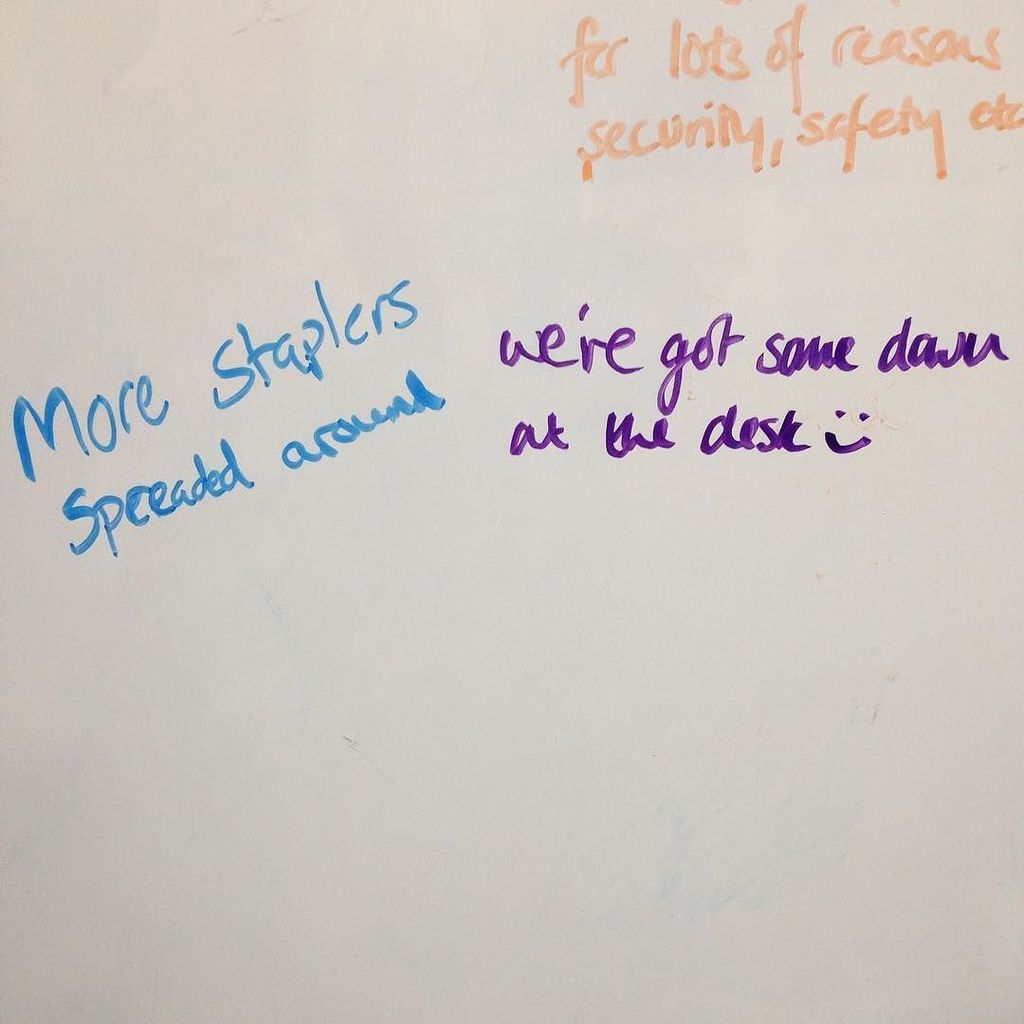 for lots of reasons
security, safety etc
More Staplers
Spreaded around
we're got some down
at the desk :)